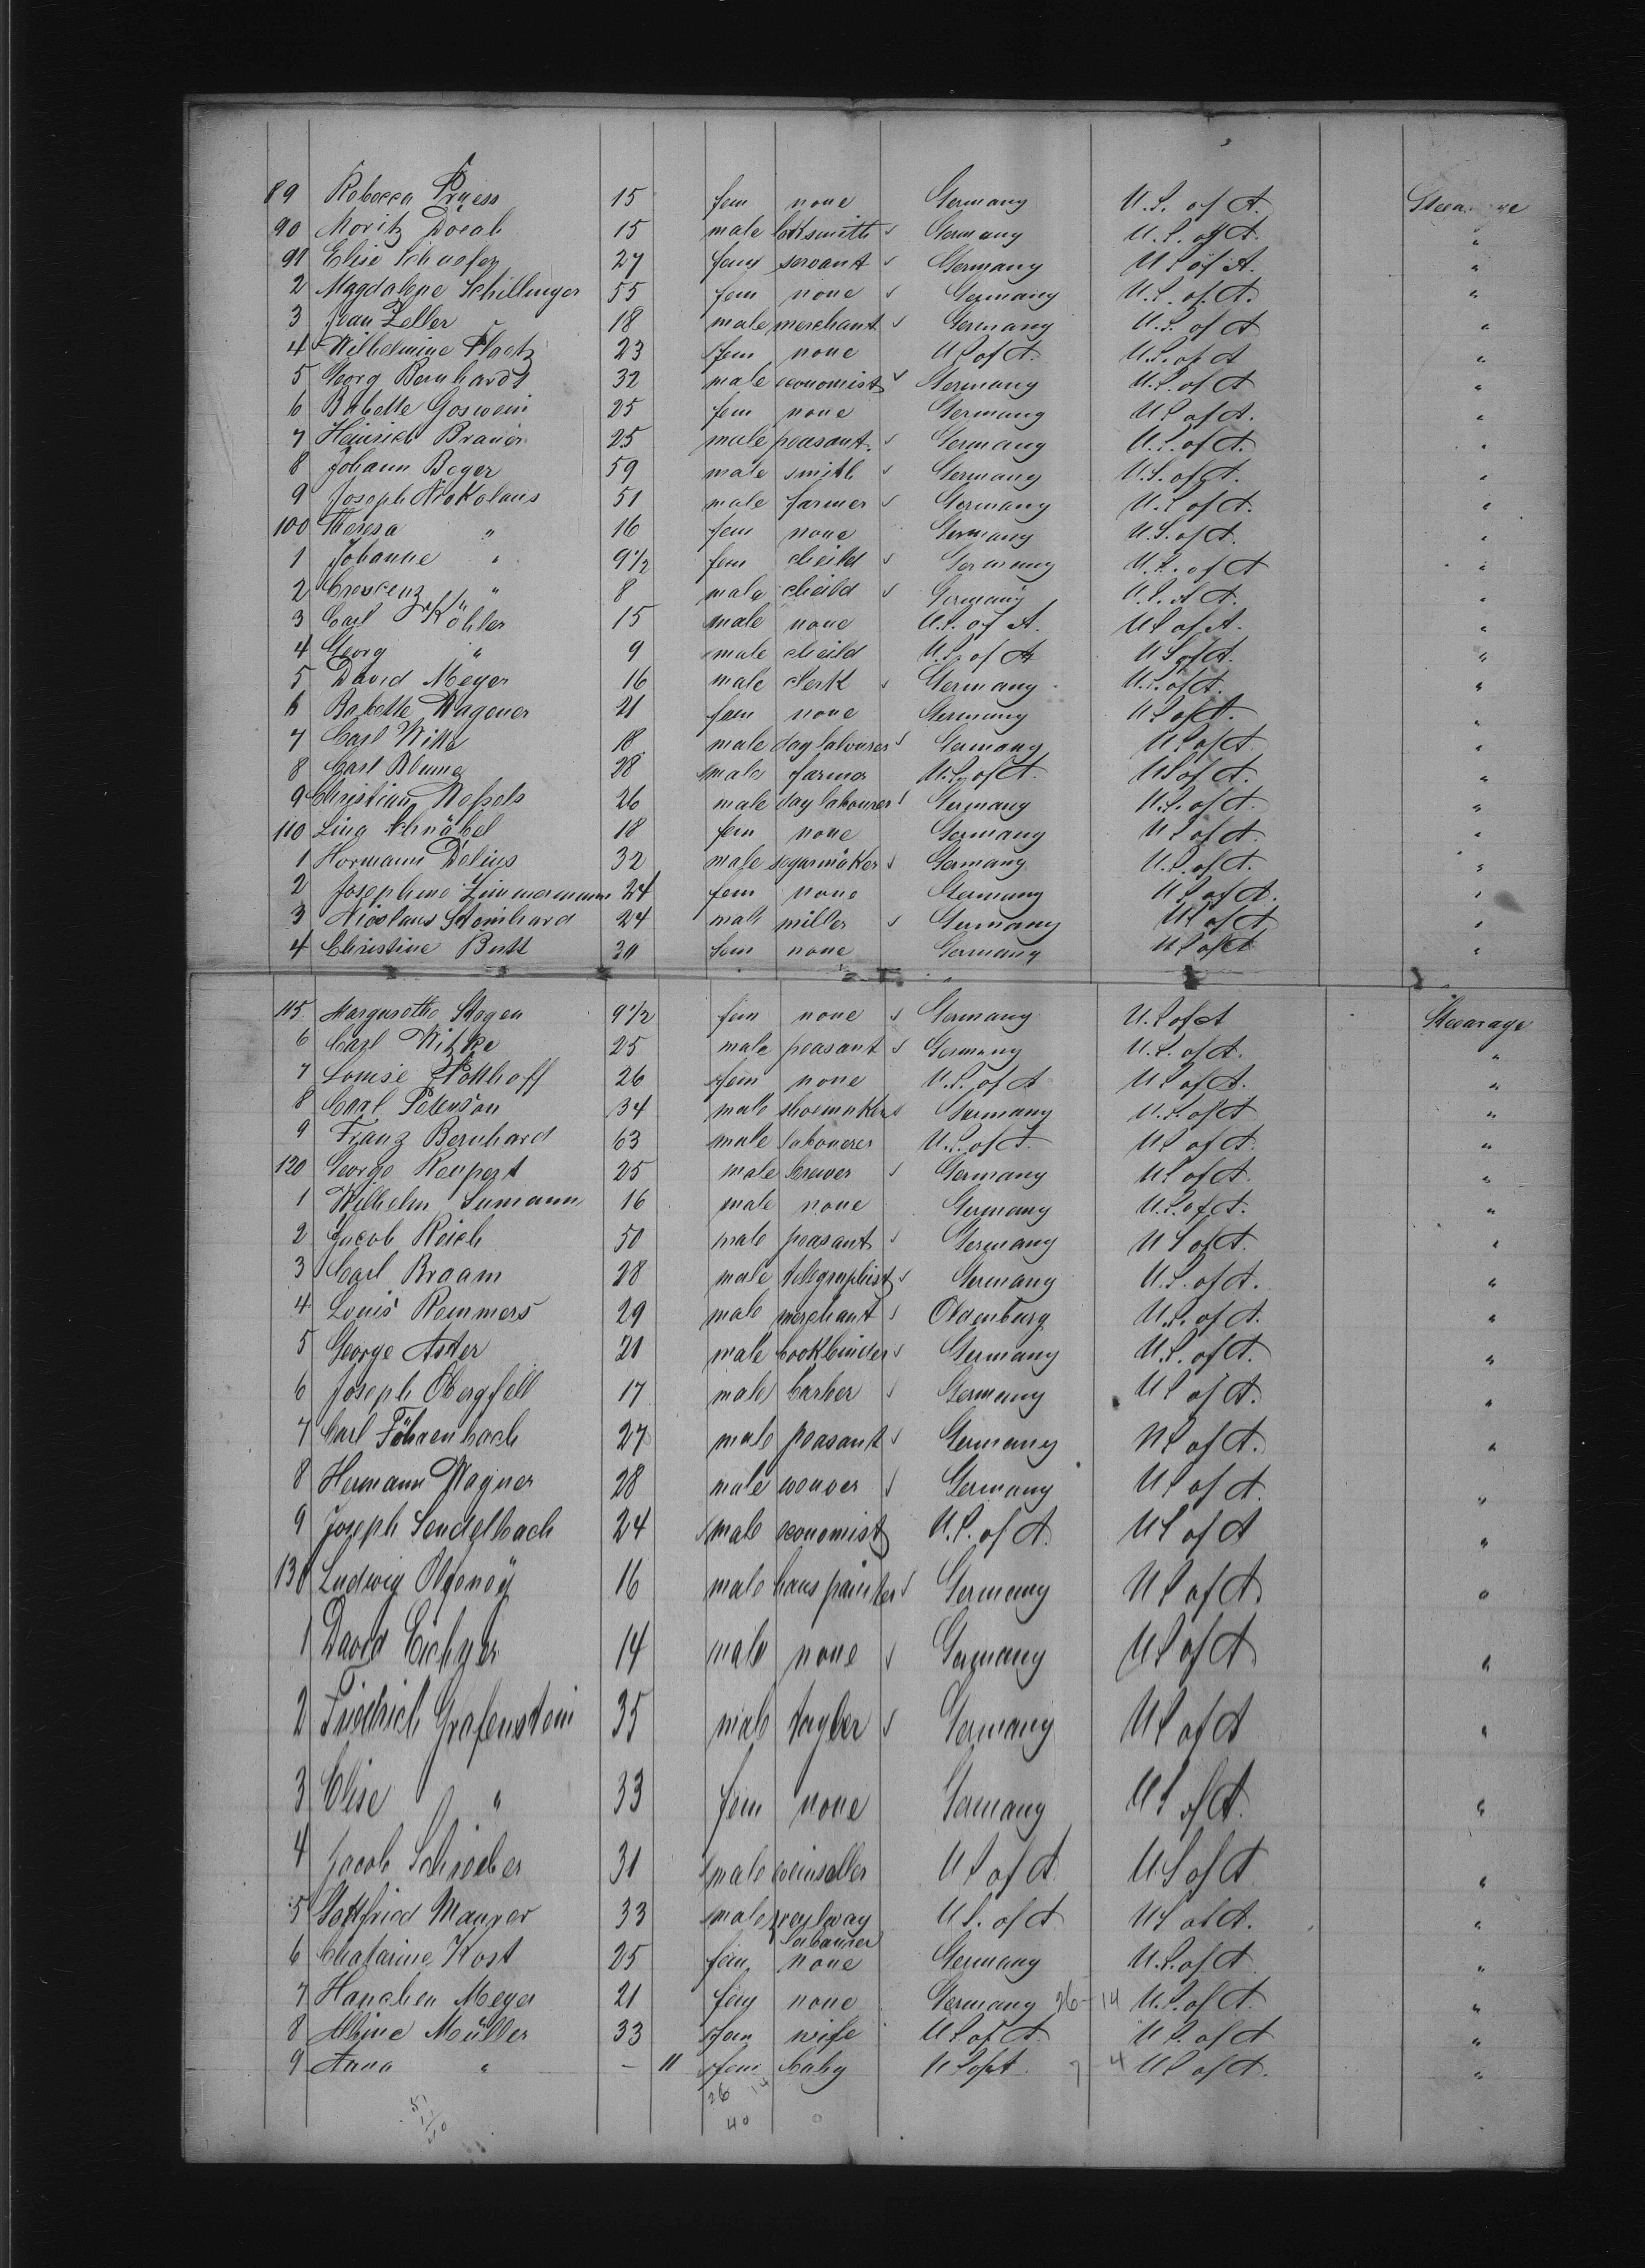 89 Rebecca Pruess 15 fem none Germany U.S. of A. Steerage
90 Moritz 15 male locksmith Germany U.S. of A. "
91 Elise Schaefer 27 fem servant Germany U S of A. "
2 Magdalene Schillinger 55 fem none Germany U.S. of A. "
3 Jean Zeller 18 male merchant Germany U.S. of A "
4 Wilhelmine 23 fem none U S of A. U.S. of A "
5 Georg Bernhardt 32 male economist Germany U.S. of A "
6 Babette Goswein 25 fem none Germany U S of A. "
7 Heinrich Brauer 25 male peasant Germany U.S. of A. "
8 Johann Beyer 59 male smith Germany U.S. of A. "
9 Joseph Nickolaus 51 male farmer Germany U.S of A. "
100 Theresa " 16 fem none Germany U.S. of A. "
1 Johanne " 9 1/2 fem cheild Germany U.S. of A "
2 Crescenz " 8 male cheild Germany U.S. of A. "
3 Carl Köhler 15 male none U.S. of A. U S of A. "
4 Georg " 9 male cheild U.S. of A U S of A. "
5 David Meyer 16 male clerk Germany U.S. of A. "
6 Babette Wagener 21 fem none Germany U S of A. "
7 Carl Witte 18 male day labourer Germany U S of A "
8 Carl Blume 28 male farmer U.S. of A. U S of A. "
9 Christian Wessels 26 male day labourer Germany U.S. of A. "
110 Lina Schnäbel 18 fem none Germany U S of A. "
1 Hermann Delius 32 male segarmaker Germany U.S. of A. "
2 Josephine Zimmermann 24 fem none Germany U S of A. "
3 Nicolaus Steinhard 24 male miller Germany U S of A "
4 Christine Butt 30 fem none Germany U S of A "
115 Margarethe Stegen 9 1/2 fem none Germany U.S of A Steearage
6 Carl Witzke 25 male peasant Germany U.S. of A. "
7 Louise Potthoff 26 fem none U.S. of A U S of A. "
8 Carl Peterson 34 male shoemaker Germany U.S. of A "
9 Franz Bernhard 63 male labourer U.S. of A. U S of A. "
120 George Reupert 25 male brewer Germany U S of A. "
1 Wilhelm Sumann 16 male none Germany U.S. of A. "
2 Jacob Reich 50 male peasant Germany U S of A. "
3 Carl Braam 28 male telegraphist Germany U.S. of A. "
4 Louis Remmers 29 male merchant Oldenburg U.S. of A. "
5 George Aster 21 male bookbinder Germany U.S. of A. "
6 Joseph Obergfell 17 male barber Germany U S of A. "
7 Carl Föhrenbach 27 male peasant Germany U S of A. "
8 Hermann Wagner 28 male weaver Germany U S of A. "
9 Joseph Sendelbach 24 male economist U.S. of A. U S of A "
130 Ludwig 16 male haus painter Germany U S of A. "
1 David Eichner 14 male none Germany U S of A "
2 Friedrich Grafenstein 35 male taylor Germany U S of A "
3 Elise " 33 fem none Germany U S of A. "
4 Jacob Schreiber 31 male weinseller U S of A U.S of A "
5 Gottfried Maurer 33 male reylway U S. of A U S of A. "
labourer
6 Chatarine Kost 25 fem none Germany U.S. of A "
7 Hanchen Meyer 21 fem none Germany 26-14 U.S. of A. "
8 Müller 33 fem wife U S of A. U S. of A "
9 Anna " - 11 fem baby U S of A. 7-4 U S of A. "
36 14
40 0